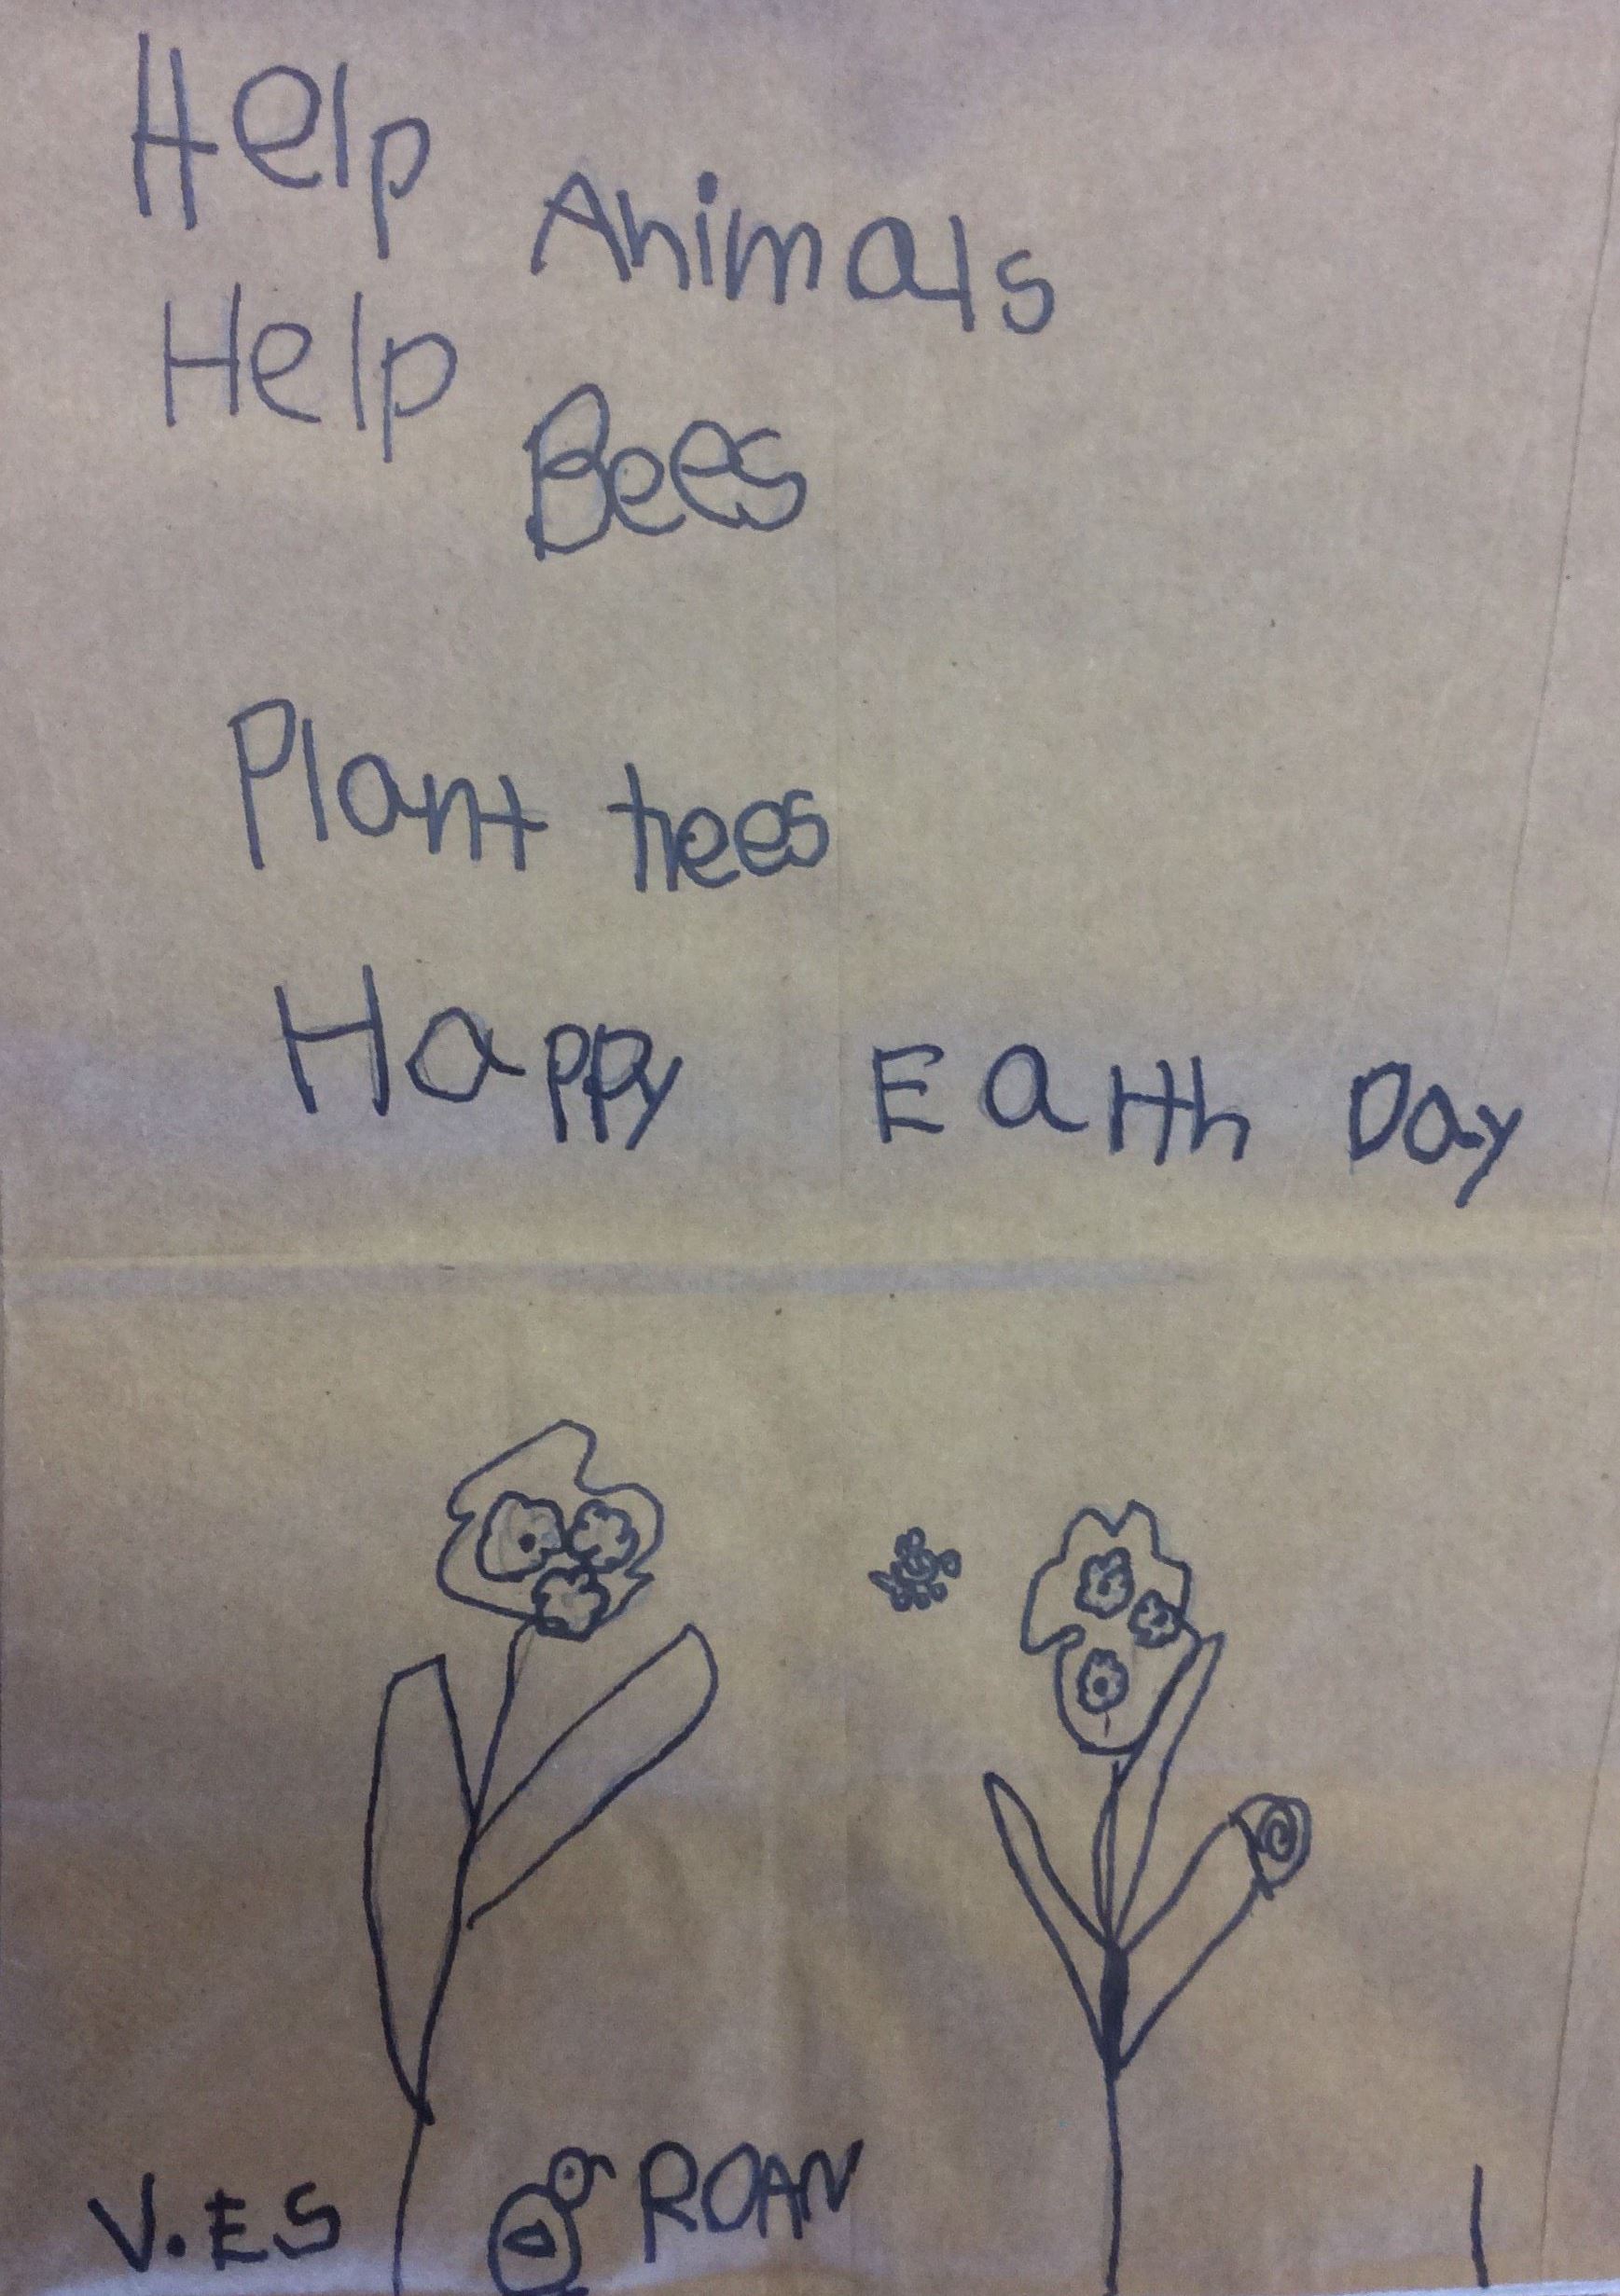 Help Animals
Help Bees
Plant trees
Happy Earth Day
V.ES ROAN 1